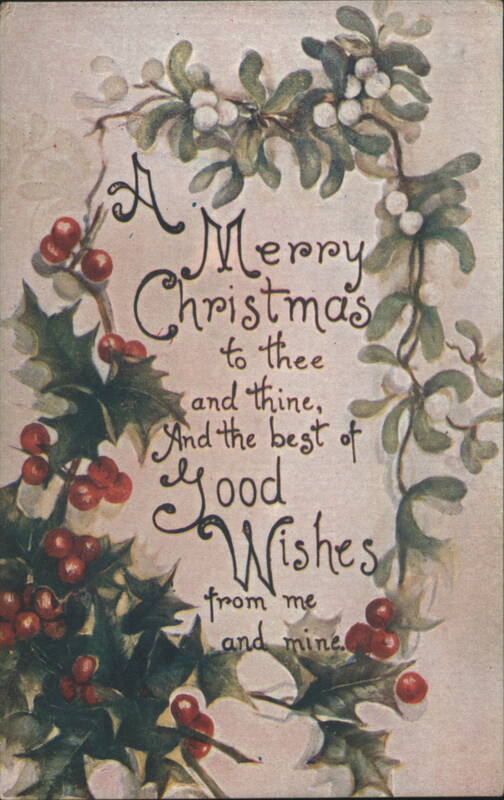 A
Merry
Christmas
to thee
and thine,
And the best of
Good
Wishes
from me
and mine.